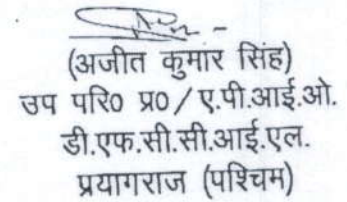 (अजीत कुमार सिंह)
उप परि० प्र० / ए.पी.आई.ओ.
डी.एफ.सी.सी.आई.एल.
प्रयागराज (पश्चिम)